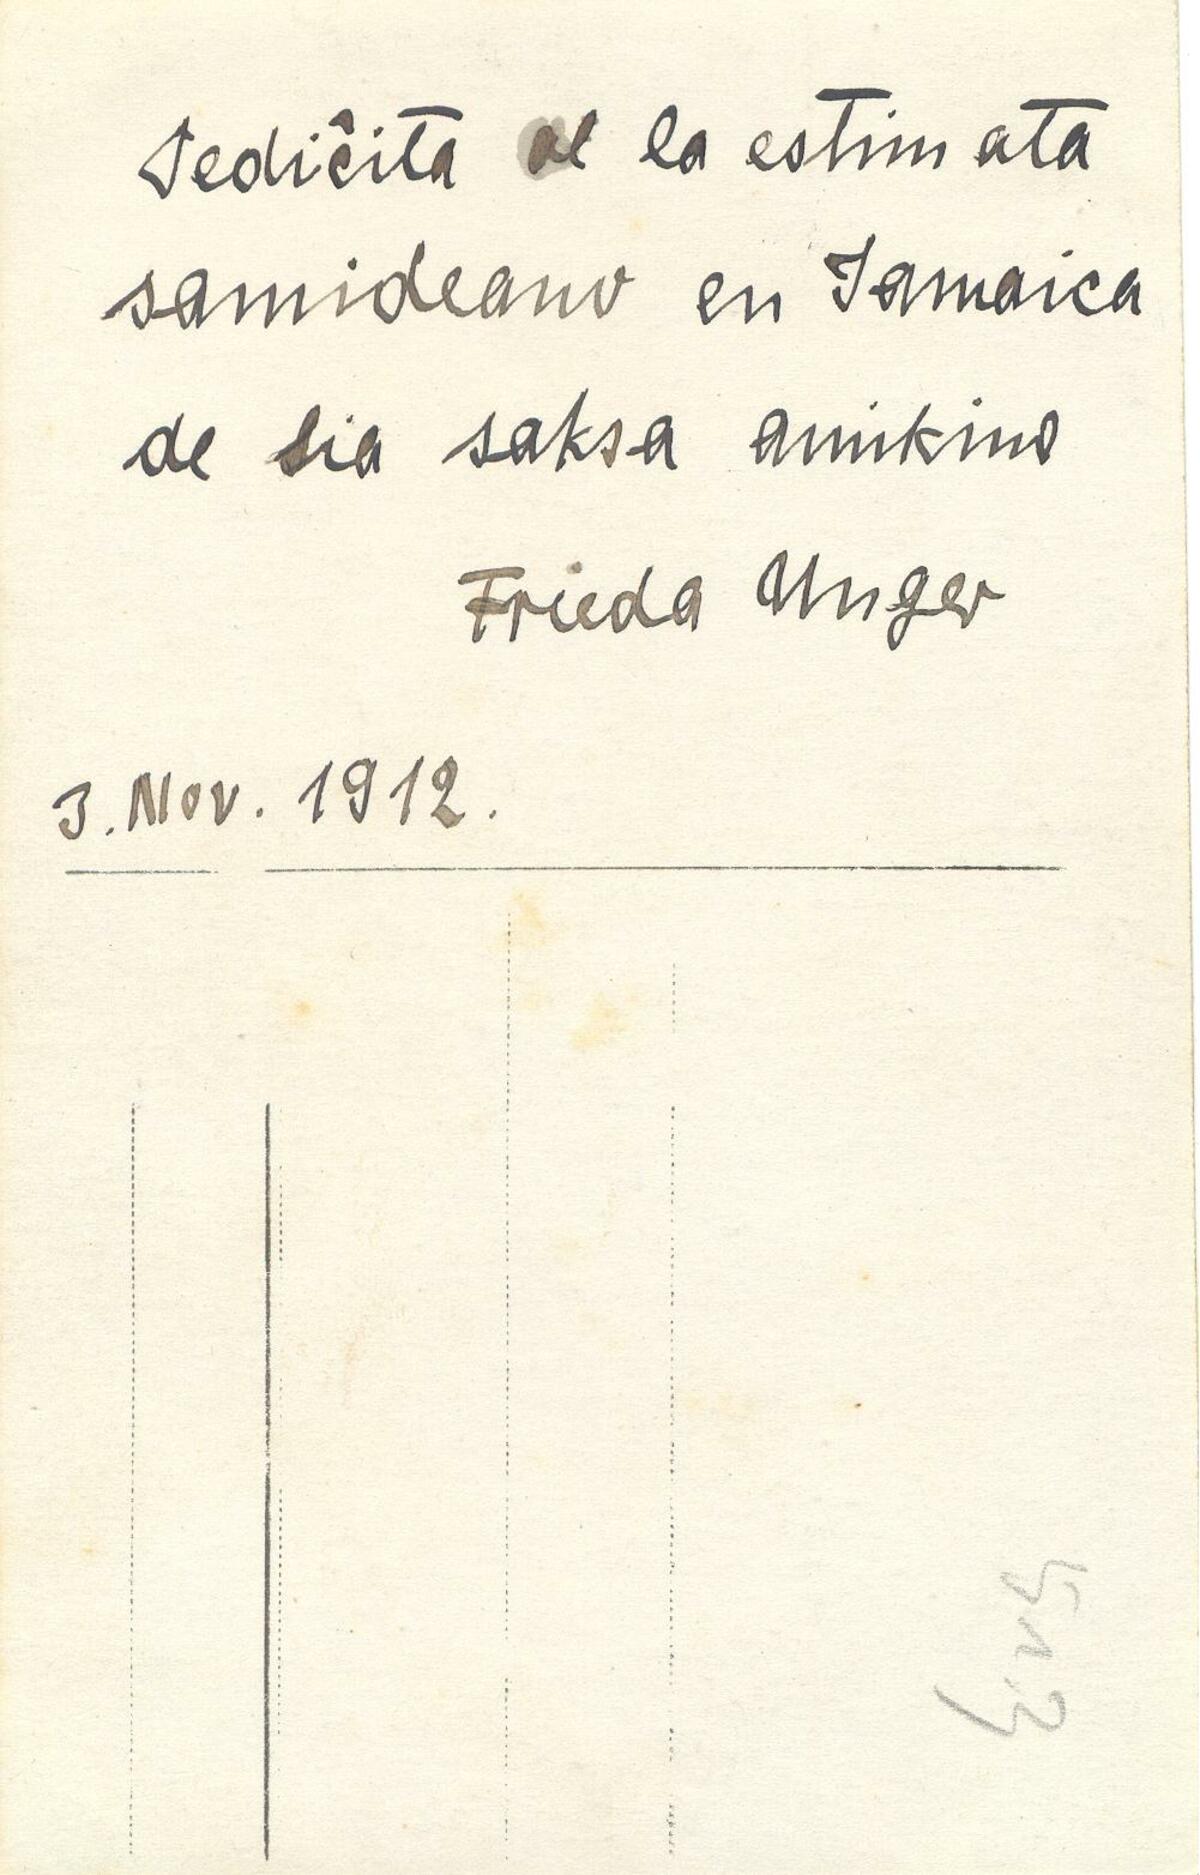 Dediĉita al la estimata
samideano en Jamaica
de sia saksa amikino
Frieda Unger
3. Nov. 1912.